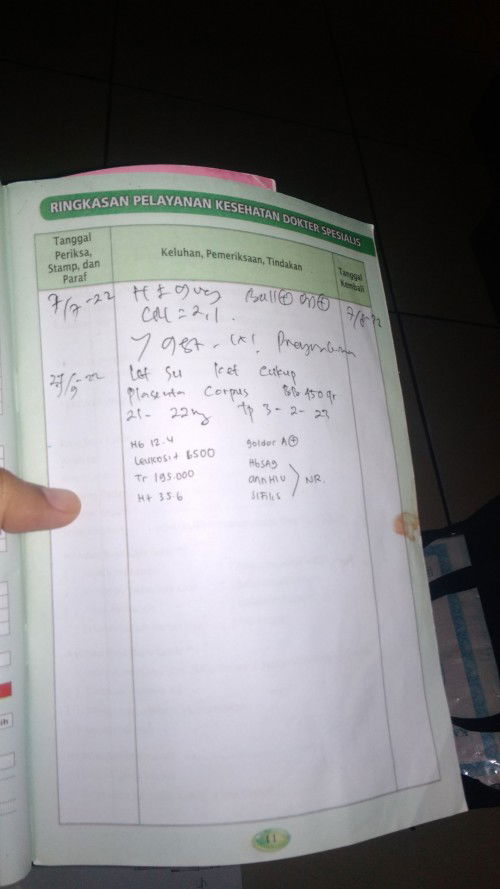 RINGKASAN PELAYANAN KESEHATAN DOKTER SPESIALIS
Tanggal Periksa, Stamp, dan Paraf
Keluhan, Pemeriksaan, Tindakan
Tanggal Kembali
7/7-22
Ball ⊕
7/8-22
CRL = 2,1
Let Su Ket Cukup
Placenta Corpus BB 450 gr
21 - 22 mg tp 3-2-23
Hb 12.4 goldar A⊕
Leukosit 6500 HbSAg
Tr 195.000 anti HIV NR.
Ht 35.6 Sifilis
11